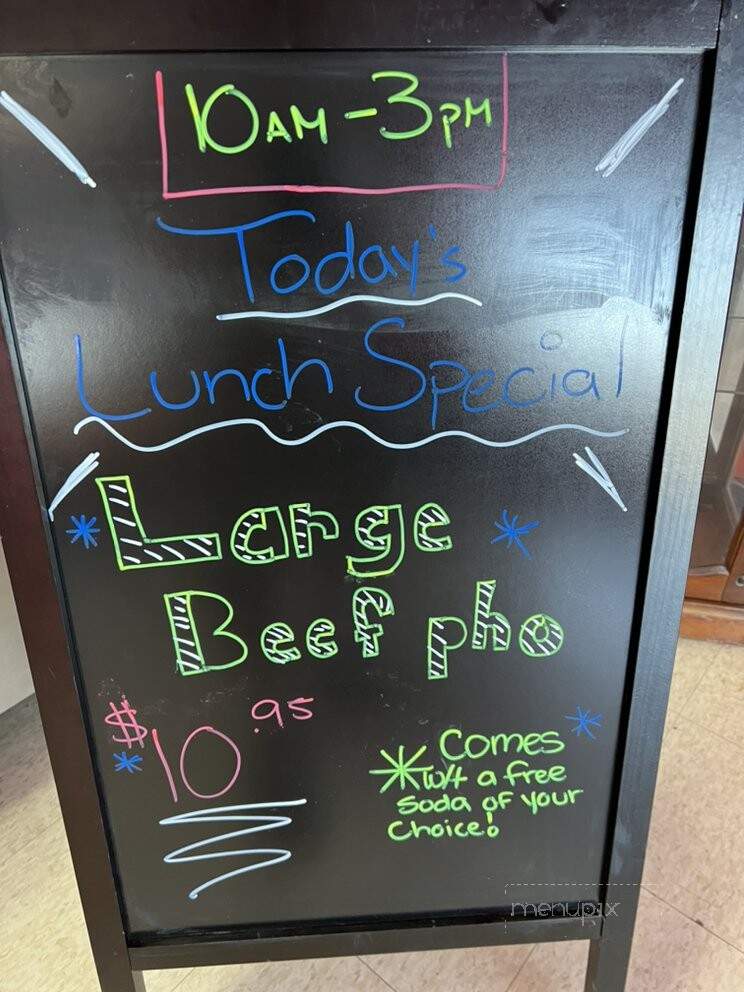 10AM - 3PM
Today's
Lunch Special
Large
Beef pho
$10.95
* Comes
a free
soda of your
choice!
menupix